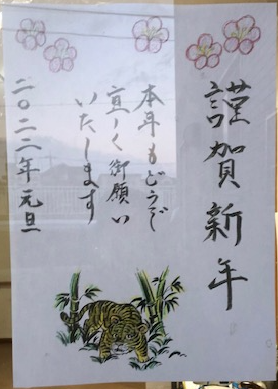 謹賀新年
本年もどうぞ
宜しく御願い
いたします
二〇二二年 元旦